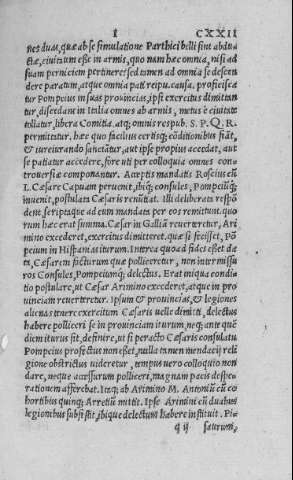 I CXXII
nes duas, quæ ab se simulatione Parthici belli sint abdu
ctæ, eiuitum esse in armis, quo nam hæc omnia, nisi ad
suam perniciem pertinere? sed tamen ad omnia se descen
dere paratum, atque omnia pati reipu. causa. proficisca
tur Pompeius in suas prouincias, ipsi exercitus dimittan
tur, discedant in Italia omnes ab armis, metus è ciuitate
tollatur, libera Comitia. atq; omnis respub. S. P. Q. R.
permittatur. hæc quo facilius certisq; cõditionibus fiãt,
& iureiurando sanciãtur, aut ipse propius accedat, aut
se patiatur accedere, fore uti per colloquia omnes con
trouersiæ componantur. Acceptis mandatis Roscius cũ
L. Cæsare Capuam peruenit, ibiq; consules, Pompeiũq;
inuenit, postulata Cæsaris renũtiat. Illi deliberata respõ
dent, scriptaque ad eum mandata per eos remittunt. quo
rum hæc erat summa. Cæsar in Galliã reuerteretur, Ari
mino excederet, exercitus dimitteret. quæ si fecisset, Põ
peium in Hispanias iturum. Interea quoad fides esset da
ta, Cæsarem facturum quæ polliceretur, non intermissu
ros Consules, Pompeiumq; delectus. Erat iniqua condi
tio postulare, ut Cæsar Arimino excederet, atque in pro
uinciam reuerteretur. Ipsum & prouincias, & legiones
alienas tenere: exercitum Cæsaris uelle dimitti, delectus
habere: polliceri se in prouinciam iturum, neq; ante quẽ
diem iturus sit, definire, ut si peracto Cæsaris consulatu
Pompeius profectus non esset, nulla tamen mendacij reli
gione obstrictus uideretur, tempus uero colloquio non
dare, neque accessurum polliceri, magnam pacis despe
rationem afferebat. Itaq; ab Arimino M. Antoniũ cũ co
hortibus quinq; Arretiũ mittit. Ipse Arimini cũ duabus
legionibus subsistit, ibique delectum habere instituit. Pi⸗
q ij saurum,